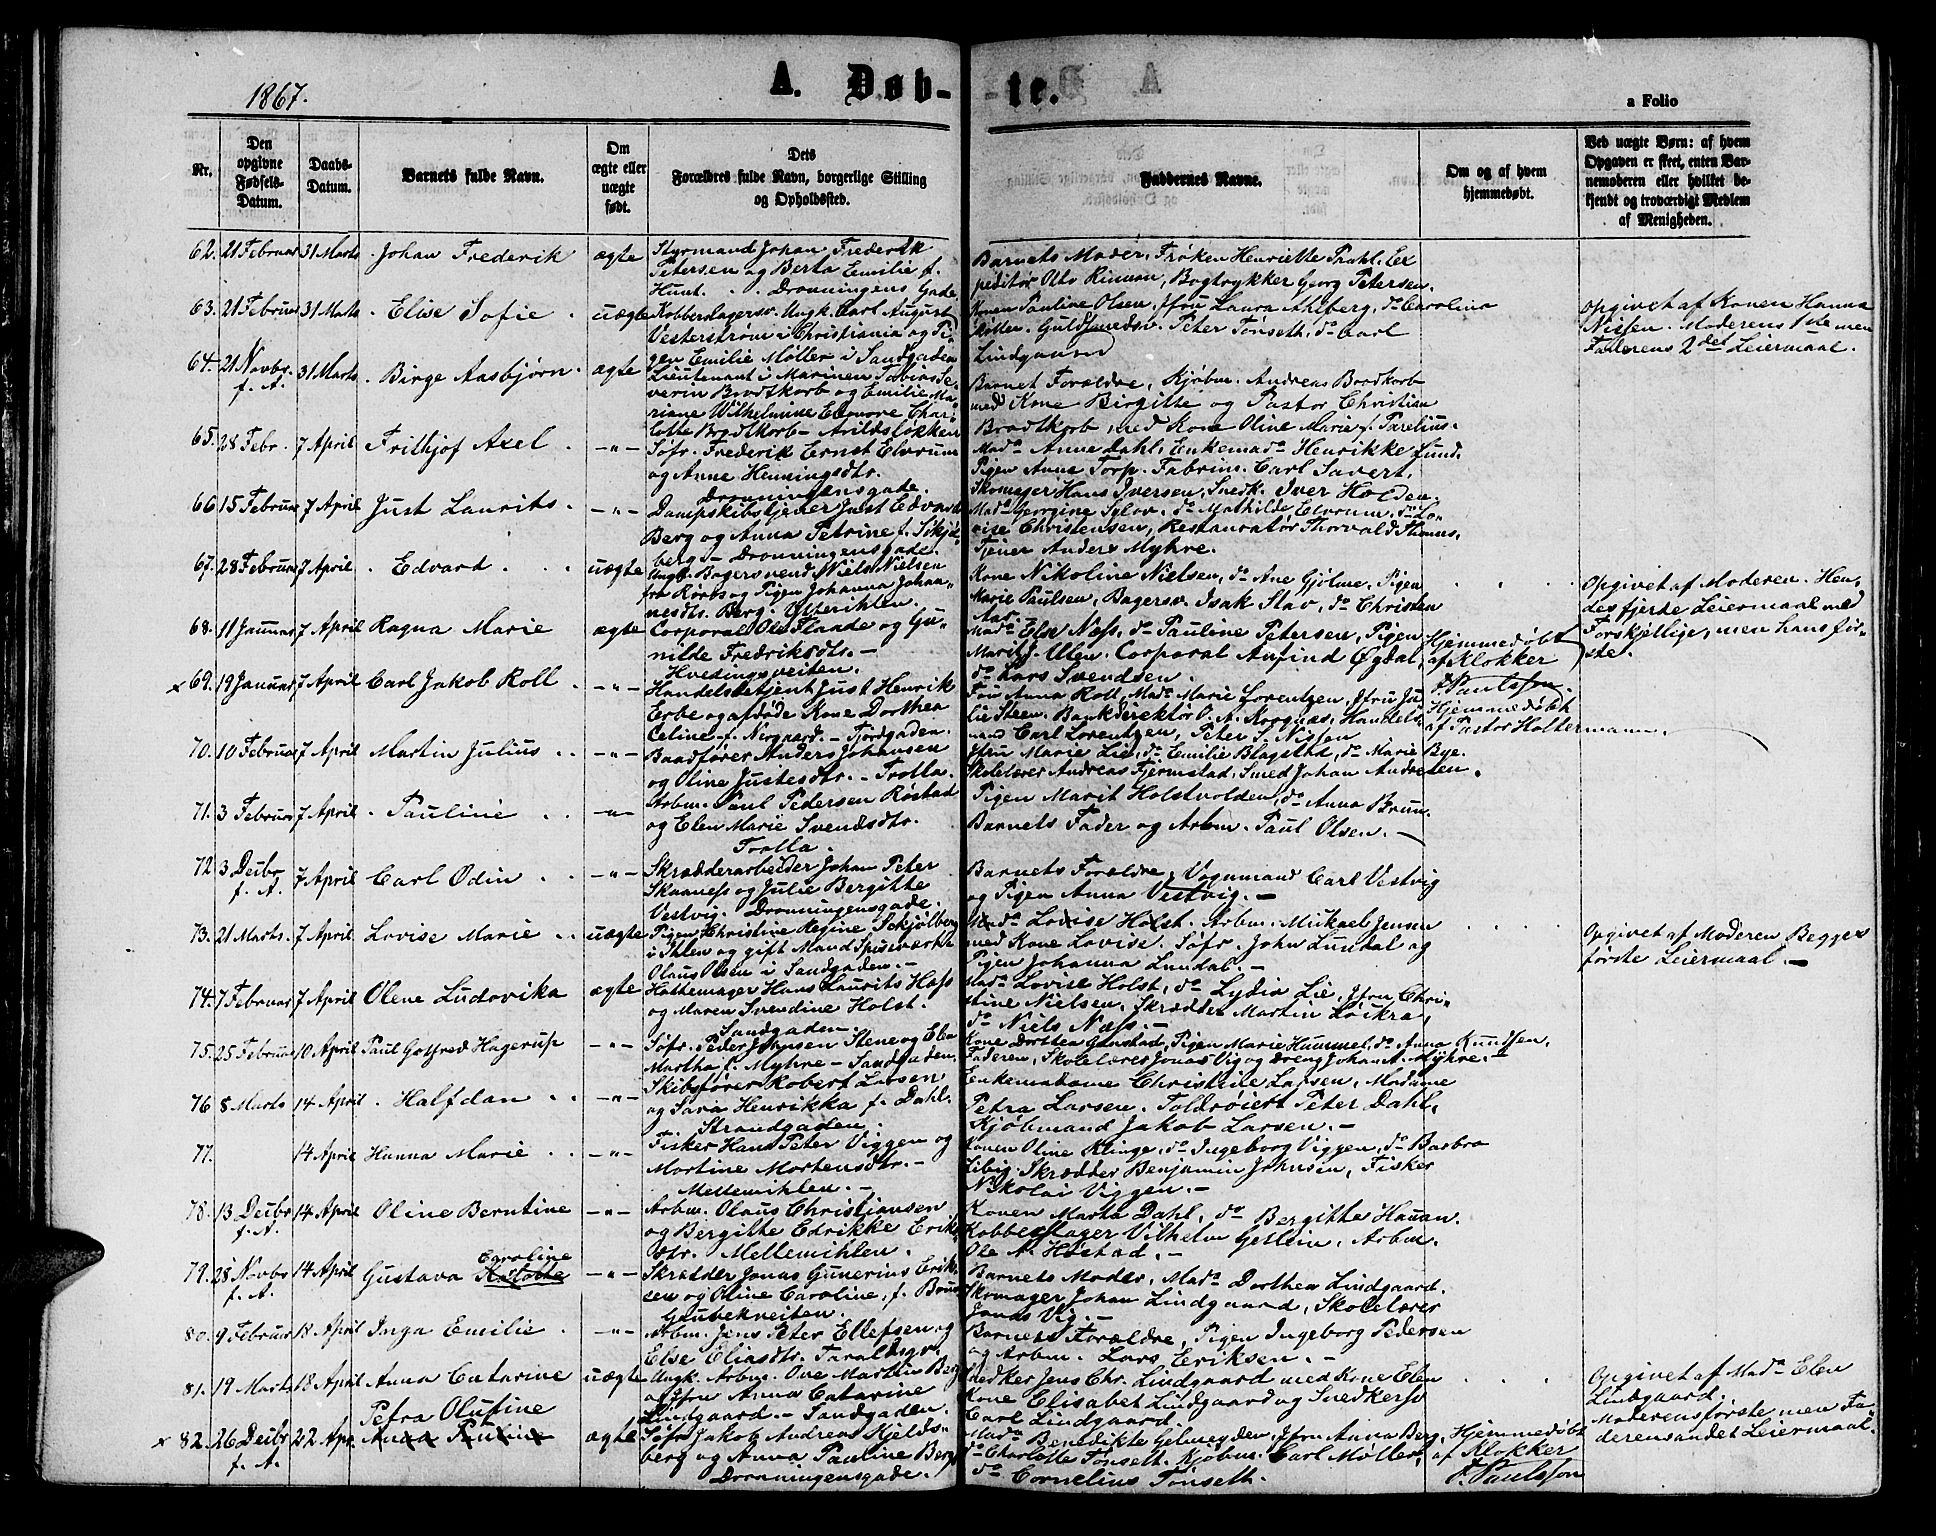 1867.
A. Døb-
te.
a Folio
Nr.
Den opgivne Fødsels-Datum.
Daabs-Datum.
Barnets fulde Navn.
Om ægte eller uægte født.
Dets Forældres fulde Navn, borgerlige Stilling og Opholdssted.
Faddernes Navne.
Om og af hvem hjemmedøbt.
Ved uægte Børn: af hvem Opgaven er skeet, enten Barnemoderen eller hvilket bekjendt og troværdigt Medlem af Menigheden.
62. 21 Februar 31 Marts Johan Frederik ægte Styrmand Johan Frederik
Petersen og Berta Emilie f.
Hunt. Dronningens Gade.
Barnets Moder, Frøken Henriette Prahl. Ex
peditør Otto, Bogtrykker Georg Petersen.
63. 21 Februar 31 Marts Elise Sofie uægte Kobberslagersv. Ungk. Carl August
Vesterstrøm i Christiania og Pi
gen Emilie Møller i Sandgaden
Konen Pauline Olsen, Jfru Laura Ahlberg, do Carolina
Guldsmedsv. Peter Tønseth, do Carl
Lindgaard
Opgivet af Konen Hanna
Nissen. Moderens 1ste men
Faderens 2det Leiermaal.
64. 21 Novbr. 31 Marts Birge Aasbjørn ægte
f. A.
Lieutenant i Marinen Tobias Se-
verin Brodtkorb og Emilie Ma-
riane Wilhelmine Eleonore Char-
lotte Brodtkorb - Arildsløkken
Barnet Forældre, Kjøbm. Andreas Brodtkorb
med Kone Birgitte og Pastor Christian
Brodtkorb med Kone Oline Marie f. Parelius.
65. 28 Febr. 7 April Frithjof Axel -"- Søfr. Frederik Ernst Elvrum
og Anne Henningsdtr.
Dronningensgade.
Mada Anne Dahl, Enkemada Henrikke Lund.
Pigen Anna Torp. Fabrim. Carl Savert,
Skomager Hans Iversen, Snedk. Iver Holden.
66 15 Februar 7 April Just Laurits -"- Dampskibstjener Just Edvard
Berg og Anna Petrine f. Skjøl
berg - Dronningensgade.
Mada Georgine Sylow, do Mathilde Elvrum, do Lo-
vise Christensen, Restauratør Thorvald Thoms.
Tjener Anders Myhre.
67. 28 Februar 7 April Edvard uægte Ungk. Bagersvend Niels Nielsen
fra Røros og Pigen Johanna Johan-
nesdtr. Berg. Ytterihlen.
Kone Nikoline Nielsen, do Ane Gjølme, Pigen
Marie Paulsen, Bagersv. Isak Stav, do Christen
Aas.
Opgivet af Moderen. Hen-
des fjerde Leiermaal med
Forskjellige, men hans før-
ste.
68. 11 Januar 7 April Ragna Marie ægte Corporal Ole Flaade og Gu-
nilde Fredriksdtr. -
Hvedingsveiten.
Mada Else Næss, do Pauline Petersen, Pigen
Marit J. Ulen. Corporal Anfind Øgdal,
do Lars Svendsen.
Hjemmedøbt
af Klokker
P. Paulsson
x 69. 19 Januar 7 April Carl Jakob Roll -"- Handelsbetjent Just Henrik
Erbe og afdøde Kone Dorthea
Celine f. Nirgaard. - Fjordgaden.
Fru Anna Roll, Mada Marie Lorentzen, Jfru Ju-
lie Steen. Bankdirektør O. A. Korgnæs, Handels-
mand Carl Lorentzen, Peter S. Nissen
Hjemmedøbt
af Pastor Holtermann.
70. 10 Februar 7 April Martin Julius -"- Baadfører Anders Johansen
og Oline Justesdtr. - Trolla.
Jfru Marie Lie, do Emilie Blagstad, do Marie Bye.
Skolelærer Andreas Fjermstad, Smed Johan Andresen.
71. 3 Februar 7 April Pauline -"- Arbm. Paul Pedersen Røstad
og Elen Marie Svendsdtr.
Trolla.
Pigen Marit Holstvolden, do Anna Bruun.
Barnets Fader og Arbm. Paul Olsen.
72 3 Decbr 7 April Carl Odin -"-
f. A.
Skrædderarbeider Johan Peter
Skaanes og Julie Bergitte
Vestvig. Dronningensgade.
Barnets Forældre, Vognmand Carl Vestvig
og Pigen Anna Vestvig. -
73. 21 Marts. 7 April Lovise Marie uægte Pigen Christine Regine Sckjølberg
i Ihlen og gift Mand Spiseværth
Olaus Olsen i Sandgaden. -
do Lovise Holst. Arbm. Mickael Jensen
med Kone Lovise. Søfr. John Lundal og
Pigen Johanna Lundal. -
Opgivet af Moderen Begges
første Leiermaal. -
74. 7 Februar 7 April Olene Ludovika ægte Hattemager Hans Laurits Hass
og Maren Svendine Holst.
Sandgaden.
Mada Lovise Holst, do Lydia Lie, Jfru Chri-
stine Nielsen, Skrædder Martin Løikra,
do Niels Næss. -
75. 25 Februar 10 April Paul Gotfred Hagerup -"- Søfr. Peder Johnsen Stene og Elen
Martha f. Myhre - Sandgaden.
Kone Dorthea Ganstad, Pigen Marie Hummel, do Anna Knudsen.
Faderen, Skolelærer Jonas Vig og Dreng Johan A. Myhre.
76 8 Marts 14 April Halfdan -"- Skibsfører Robert Larsen
og Sara Henrikka f. Dahl.
Strandgaden.
Enkemadame Christine Larsen, Madame
Petra Larsen. Toldrøiert Peter Dahl,
Kjøbmand Jakob Larsen. -
77. 14 April Hanna Marie -"- Fisker Hans Peter Viggen og
Martine Mortensdtr. -
Mellemihlen. -
Konen Oline Klinge, do Ingeborg Viggen, do Barbro
Libig. Skrædder Benjamin Johnsen, Fisker
Nikolai Viggen. -
78. 13 Decbr 14 April Oline Berntine -"-
f. A.
Arbm. Olaus Christiansen
og Bergitte Edrikke Erik-
sdtr. Mellemihlen.
Konen Marta Dahl, do Bergitte Hauan.
Kobberslager Vilhelm Geslein, Arbm.
Ole N. Høstad. -
79. 28 Novbr 14 April Gustava Caroline -"-
f. A.
Skrædder Jonas Gunerius Erik-
sen og Oline Caroline f. Bruun
Gaubekveiten.
Barnets Moder, Mada Dorthea Lindgaard.
Skomager Johan Lindgaard, Skolelærer
Jonas Vig. -
80. 9 Februar 18 April Inga Emilie -"- Arbm. Jens Peter Ellefsen og
Else Eliasdtr.
Barnets Forældre, Pigen Ingeborg Pedersen
og Arbm. Lars Eriksen. -
81. 19 Marts 18 April Anna Catarine uægte Ungk. Arbm. Ove Martin Berg
og Jfru Anna Catarine
Lindgaard. - Sandgaden.
Snedker Jens Chr. Lindgaard med Kone Elen
Kone Elisabet Lindgaard og Snedkersv
Carl Lindgaard.
Opgivet af Mada Elen
Lindgaard.
Moderens første men Fa-
derens andet Leiermaal.
Petra Olufine
x 82. 26 Decbr 22 Apr. Anna Pauline ægte
f. A.
Søfr Jakob Andreas Kjelds-
berg og Anna Pauline Berg
Dronningensgade.
Mada Benedikte Gelmeyden, Jfru Anna Berg,
do Charlotte Tønseth. Kjøbm. Carl Møller,
do Cornelius Tønseth.
Hjemmedøbt
af Klokker
P. Paulsson